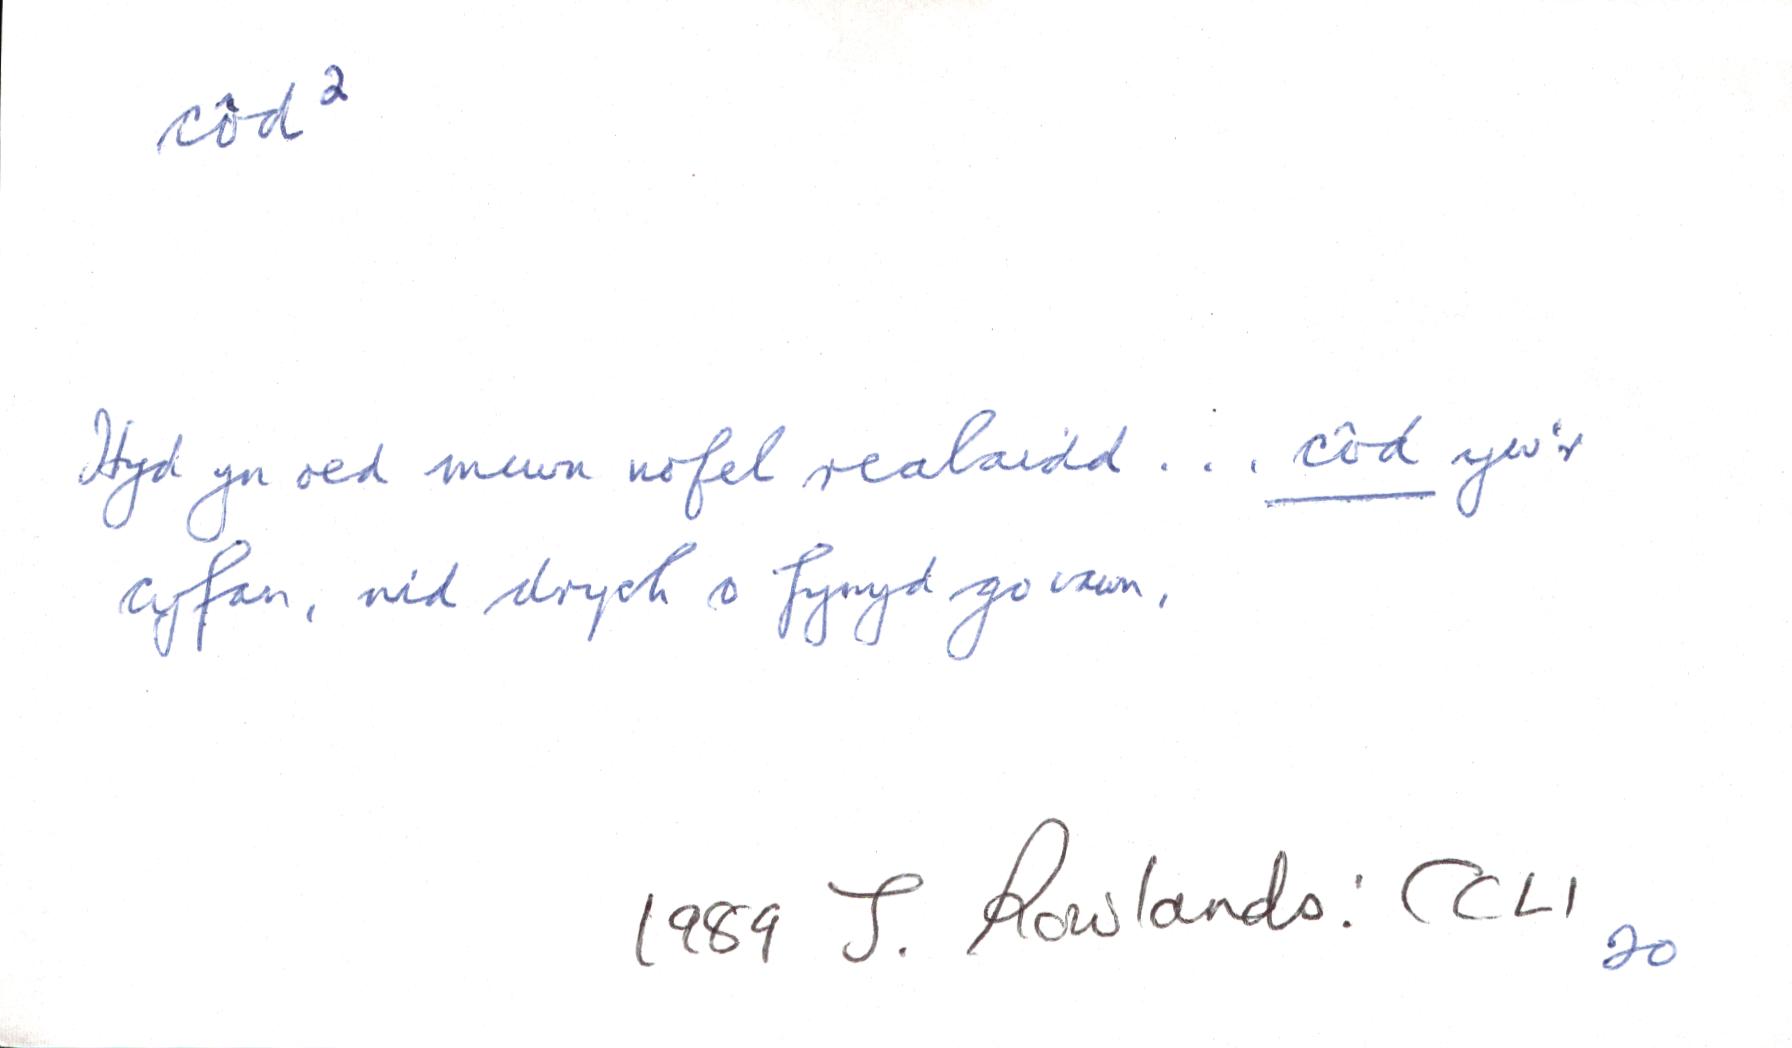 côd²
Hyd yn oed mewn nofel realaidd . . . côd yw'r
cyfan, nid drych o fywyd go iawn,
1989 J. Rowlands: CCLl
20